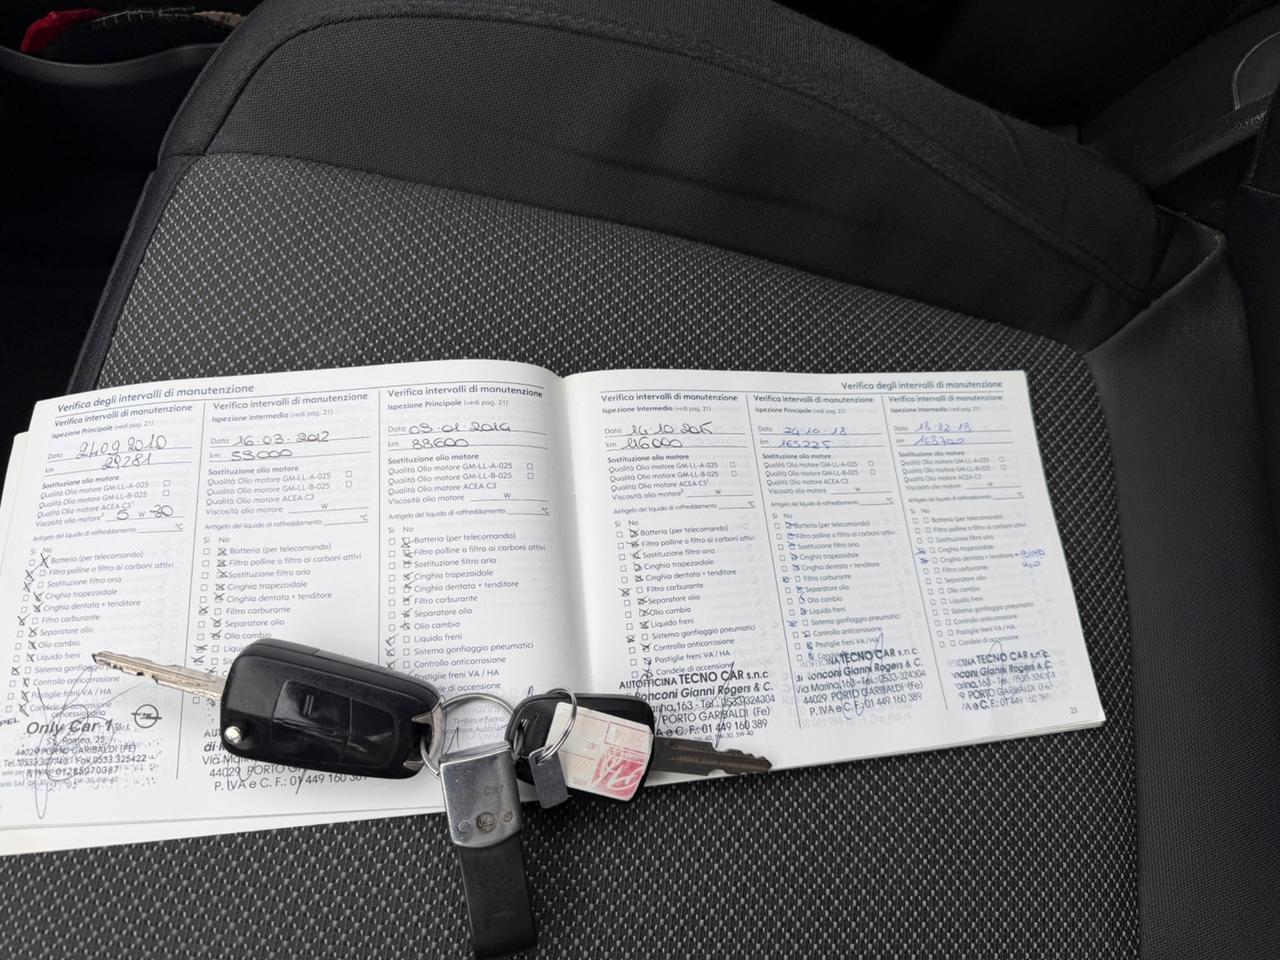 Verifica degli intervalli di manutenzione
Verifica intervalli di manutenzione
Ispezione Principale (vedi pag. 21)
Data 21.09.2010
km 29281
Sostituzione olio motore
Qualità Olio motore GM-LL-A-025
Qualità Olio motore GM-LL-B-025
Qualità Olio motore ACEA C3
Viscosità olio motore 5 W 30
Antigelo del liquido di raffreddamento °C
Si No
Batteria (per telecomando)
Filtro polline o filtro ai carboni attivi
Sostituzione filtro aria
Cinghia trapezoidale
Cinghia dentata + tenditore
Filtro carburante
Separatore olio
Olio cambio
Liquido freni
Sistema gonfiaggio
Controllo anticorrosione
Pastiglie freni VA / HA
Candele di accensione
OPEL
Only Car 1
44029 PORTO GARIBALDI (FE)
Verifica intervalli di manutenzione
Ispezione Intermedia (vedi pag. 21)
Data 16.03.2012
km 59000
Sostituzione olio motore
Qualità Olio motore GM-LL-A-025
Qualità Olio motore GM-LL-B-025
Qualità Olio motore ACEA C3
Viscosità olio motore W
Antigelo del liquido di raffreddamento °C
Si No
Batteria (per telecomando)
Filtro polline o filtro ai carboni attivi
Sostituzione filtro aria
Cinghia trapezoidale
Cinghia dentata + tenditore
Filtro carburante
Separatore olio
Olio cambio
44029 PORTO
P.IVA e C.F.: 01 449 160 389
Verifica intervalli di manutenzione
Ispezione Principale (vedi pag. 21)
Data 03.01.2014
km 88600
Sostituzione olio motore
Qualità Olio motore GM-LL-A-025
Qualità Olio motore GM-LL-B-025
Qualità Olio motore ACEA C3
Viscosità olio motore W
Antigelo del liquido di raffreddamento °C
Si No
Batteria (per telecomando)
Filtro polline o filtro ai carboni attivi
Sostituzione filtro aria
Cinghia trapezoidale
Cinghia dentata + tenditore
Filtro carburante
Separatore olio
Olio cambio
Liquido freni
Sistema gonfiaggio pneumatici
Controllo anticorrosione
di accensione
Timbro e Firma
Verifica degli intervalli di manutenzione
Verifica intervalli di manutenzione
Ispezione Intermedia (vedi pag. 21)
Data 14.10.2015
km 116000
Sostituzione olio motore
Qualità Olio motore GM-LL-A-025
Qualità Olio motore GM-LL-B-025
Qualità Olio motore ACEA C3
Viscosità olio motore W
Antigelo del liquido di raffreddamento °C
Si No
Batteria (per telecomando)
Filtro polline o filtro ai carboni attivi
Sostituzione filtro aria
Cinghia trapezoidale
Cinghia dentata + tenditore
Filtro carburante
Separatore olio
Olio cambio
Liquido freni
Sistema gonfiaggio pneumatici
Controllo anticorrosione
Pastiglie freni VA / HA
Candele di accensione
AUTOFFICINA TECNO CAR s.n.c
di Ronconi Gianni Rogers & C.
Marina,163 - Tel.: 0533324304
PORTO GARIBALDI (Fe)
P.IVA e C.F.: 01 449 160 389
Verifica intervalli di manutenzione
Ispezione Principale (vedi pag. 21)
Data 24.10.18
km 165225
Sostituzione olio motore
Qualità Olio motore GM-LL-A-025
Qualità Olio motore GM-LL-B-025
Qualità Olio motore ACEA C3
Viscosità olio motore W
Antigelo del liquido di raffreddamento °C
Si No
Batteria (per telecomando)
Filtro polline o filtro ai carboni attivi
Sostituzione filtro aria
Cinghia trapezoidale
Cinghia dentata + tenditore
Filtro carburante
Separatore olio
Olio cambio
Liquido freni
Sistema gonfiaggio pneumatici
Controllo anticorrosione
Pastiglie freni VA / HA
TECNO CAR s.n.c.
di Ronconi Gianni Rogers & C.
Via Marina,163 - Tel.: 0533-324304
44029 PORTO GARIBALDI (Fe)
P.IVA e C.F.: 01 449 160 389
Verifica intervalli di manutenzione
Ispezione Intermedia (vedi pag. 21)
Data 18.12.18
km 168700
Sostituzione olio motore
Qualità Olio motore GM-LL-A-025
Qualità Olio motore GM-LL-B-025
Qualità Olio motore ACEA C3
Viscosità olio motore W
Antigelo del liquido di raffreddamento °C
Si No
Batteria (per telecomando)
Filtro polline o filtro ai carboni attivi
Sostituzione filtro aria
Cinghia trapezoidale
Cinghia dentata + tenditore + POMPA
H2O
Filtro carburante
Separatore olio
Olio cambio
Liquido freni
Sistema gonfiaggio pneumatici
Controllo anticorrosione
Pastiglie freni VA / HA
Candele di accensione
TECNO CAR s.n.c.
Gianni Rogers & C.
PORTO GARIBALDI (Fe)
P.IVA e C.F.: 01 449 160 389
23